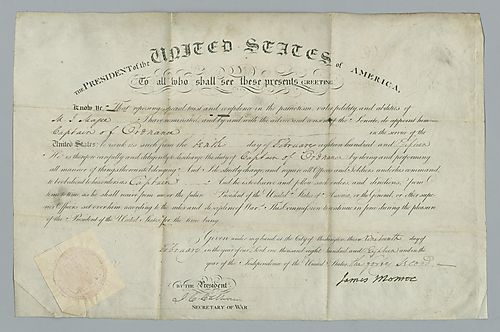 THE PRESIDENT of the UNITED STATES of AMERICA.
To all who shall see these presents GREETING
Know Ye, That reposing special trust and confidence in the patriotism, valor, fidelity, and abilities of
I have nominated, and by and with the advice and consent of the Senate, do appoint him
Captain of Ordnance in the service of the
United States: to rank as such from the tenth day of February eighteen hundred and
He is therefore carefully and diligently to discharge the duty of Captain of Ordnance by doing and performing
all manner of things thereunto belonging. And I do strictly charge, and require all Officers and Soldiers under his command,
to be obedient to his orders as Captain. And he is to observe and follow such orders, and directions, from
time to time, as he shall receive from me, or the future President of the United States of America, or the General, or other superior
Officers set over him, according to the rules and discipline of War. This Commission to continue in force during the pleasure
of the President of the United States for the time being.
Given under my hand, at the City of Washington, this day of
February in the year of our Lord one thousand eight hundred and eighteen and in the
year of the Independence of the United States. The forty second
By the President
James Monroe
J C Calhoun
SECRETARY OF WAR